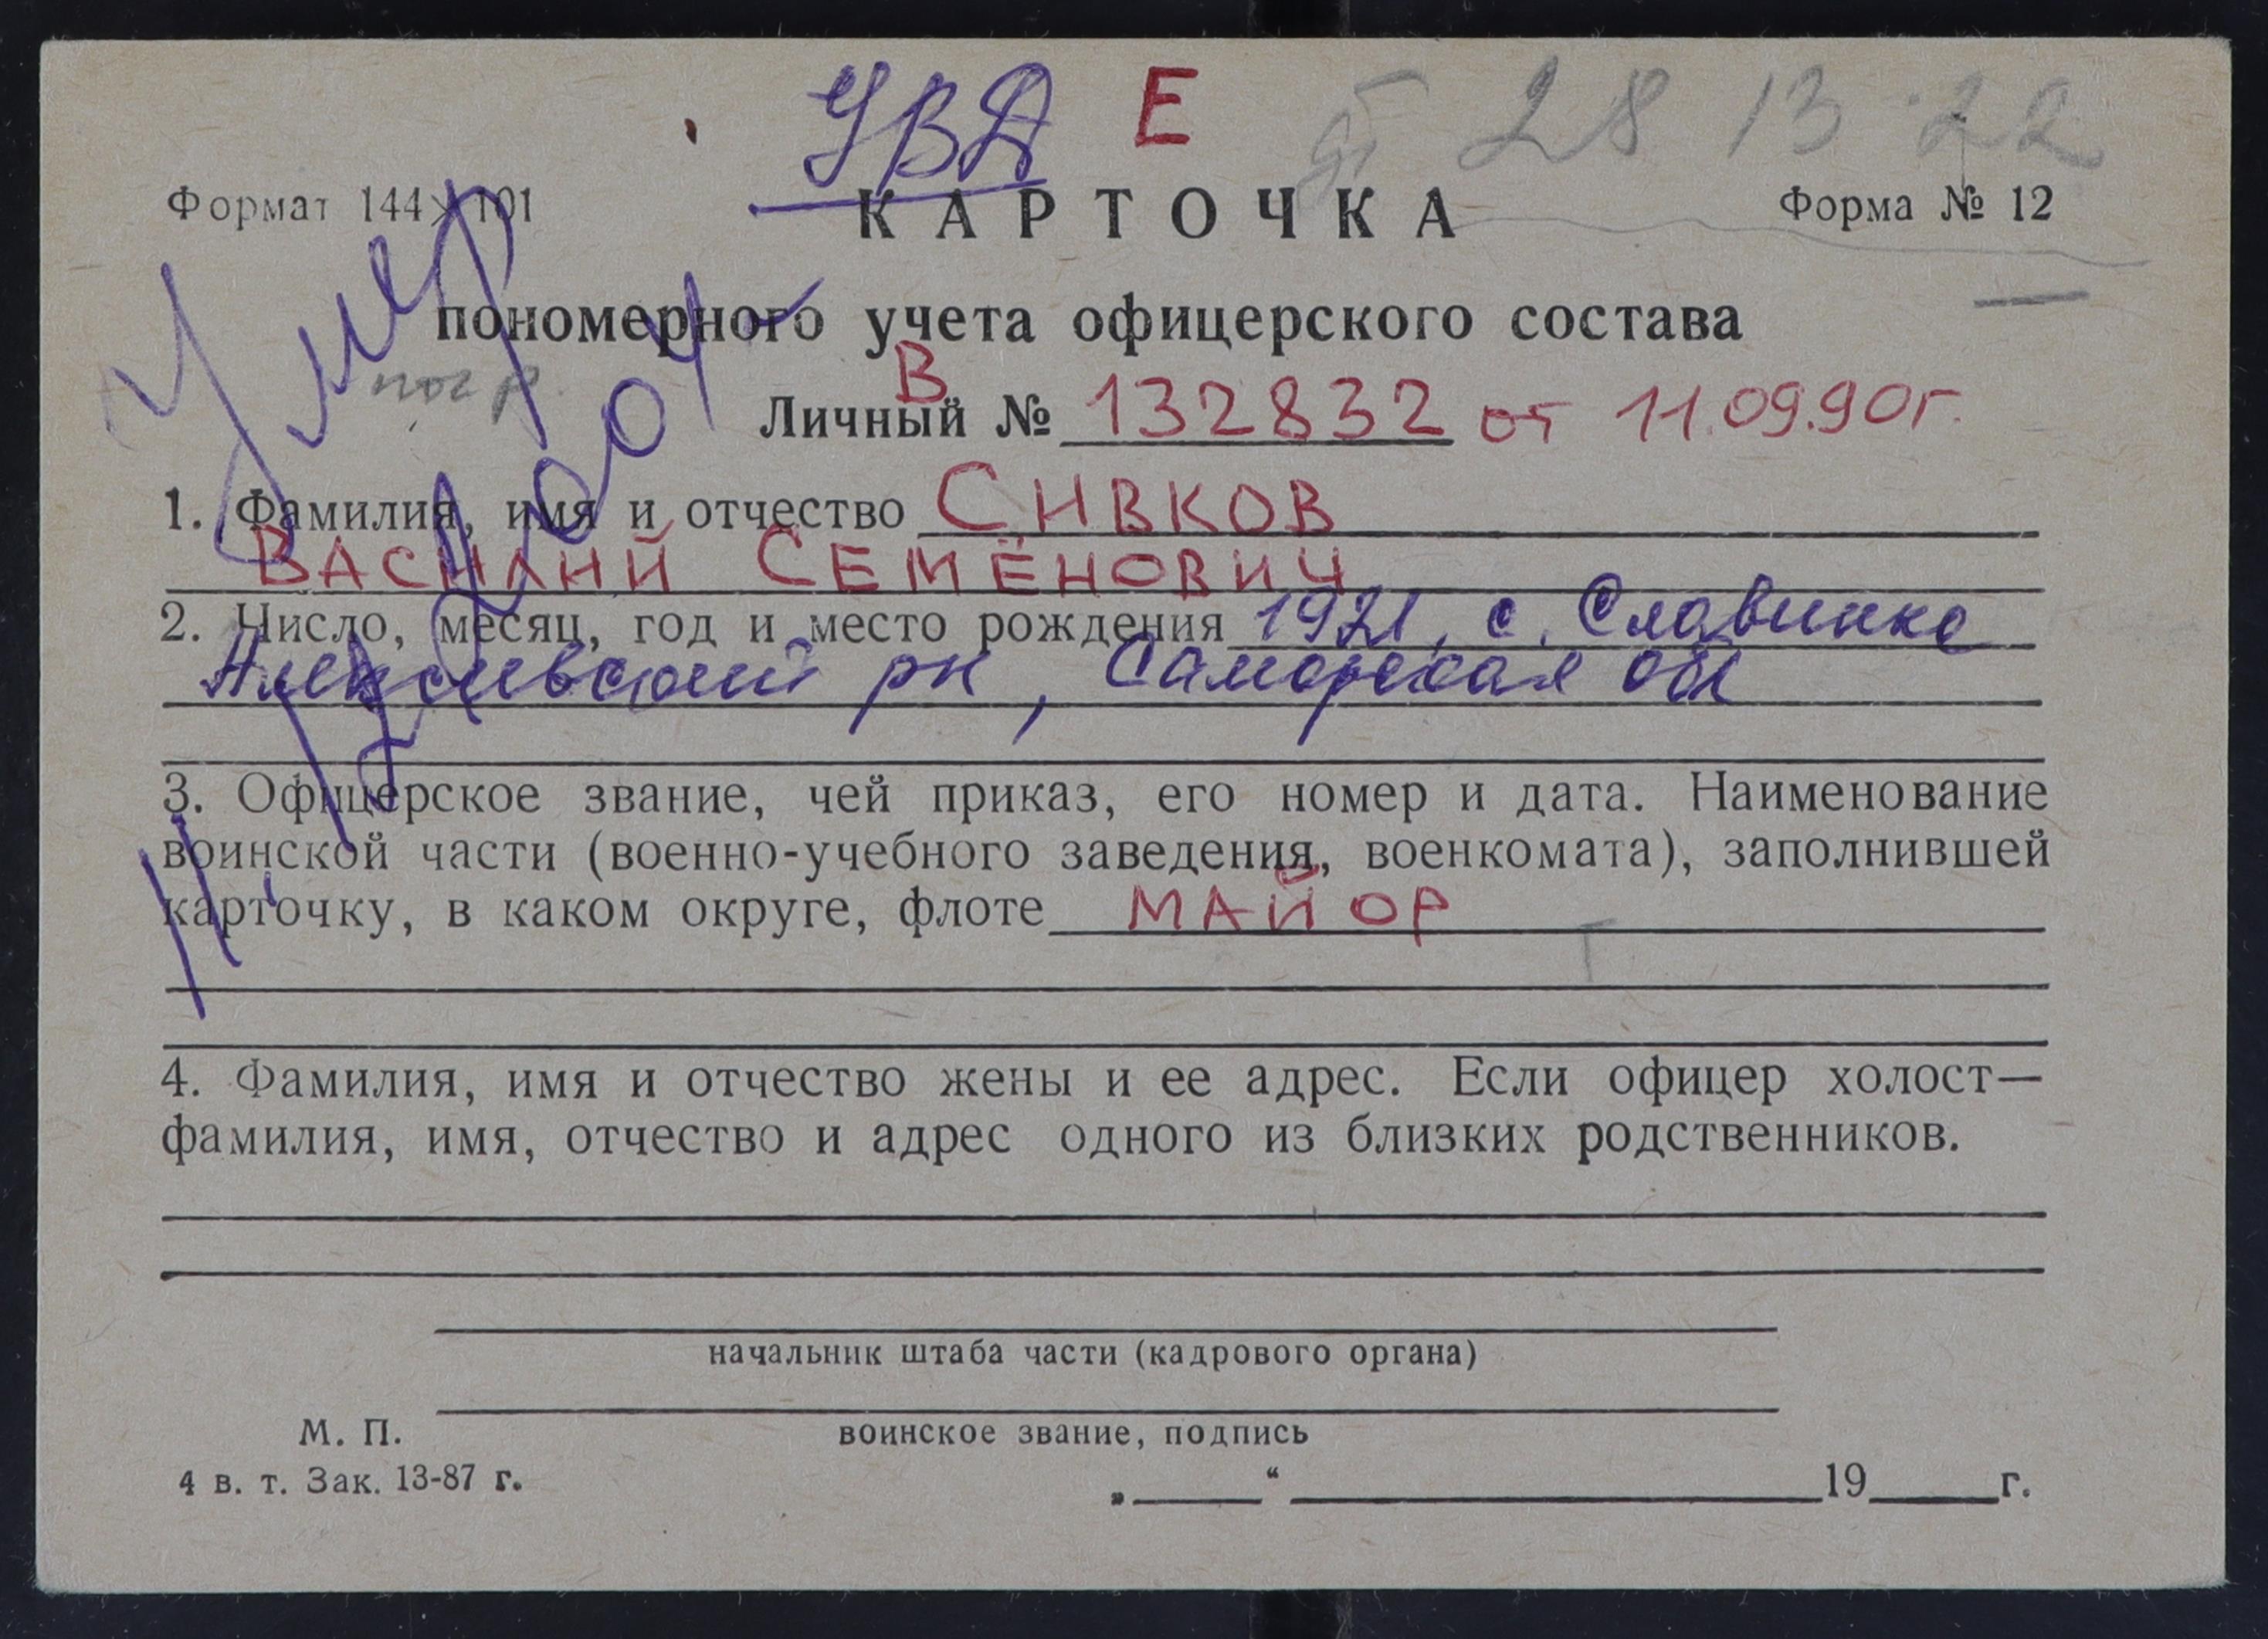 УВД Е
28 13 22
Формат 144×101 КАРТОЧКА Форма № 12
пономерного учета офицерского состава
Умер
погр.
В
Личный № 132832 от 11.09.90г.
1. Фамилия, имя и отчество СИВКОВ
ВАСИЛИЙ СЕМЁНОВИЧ
2. Число, месяц, год и место рождения 1921, с. Славинка
Алексеевский рн, Самарская обл
3. Офицерское звание, чей приказ, его номер и дата. Наименование
воинской части (военно-учебного заведения, военкомата), заполнившей
карточку, в каком округе, флоте МАЙОР
4. Фамилия, имя и отчество жены и ее адрес. Если офицер холост—
фамилия, имя, отчество и адрес одного из близких родственников.
начальник штаба части (кадрового органа)
М. П.
воинское звание, подпись
4 в. т. Зак. 13-87 г.
„____“ ____________19____г.